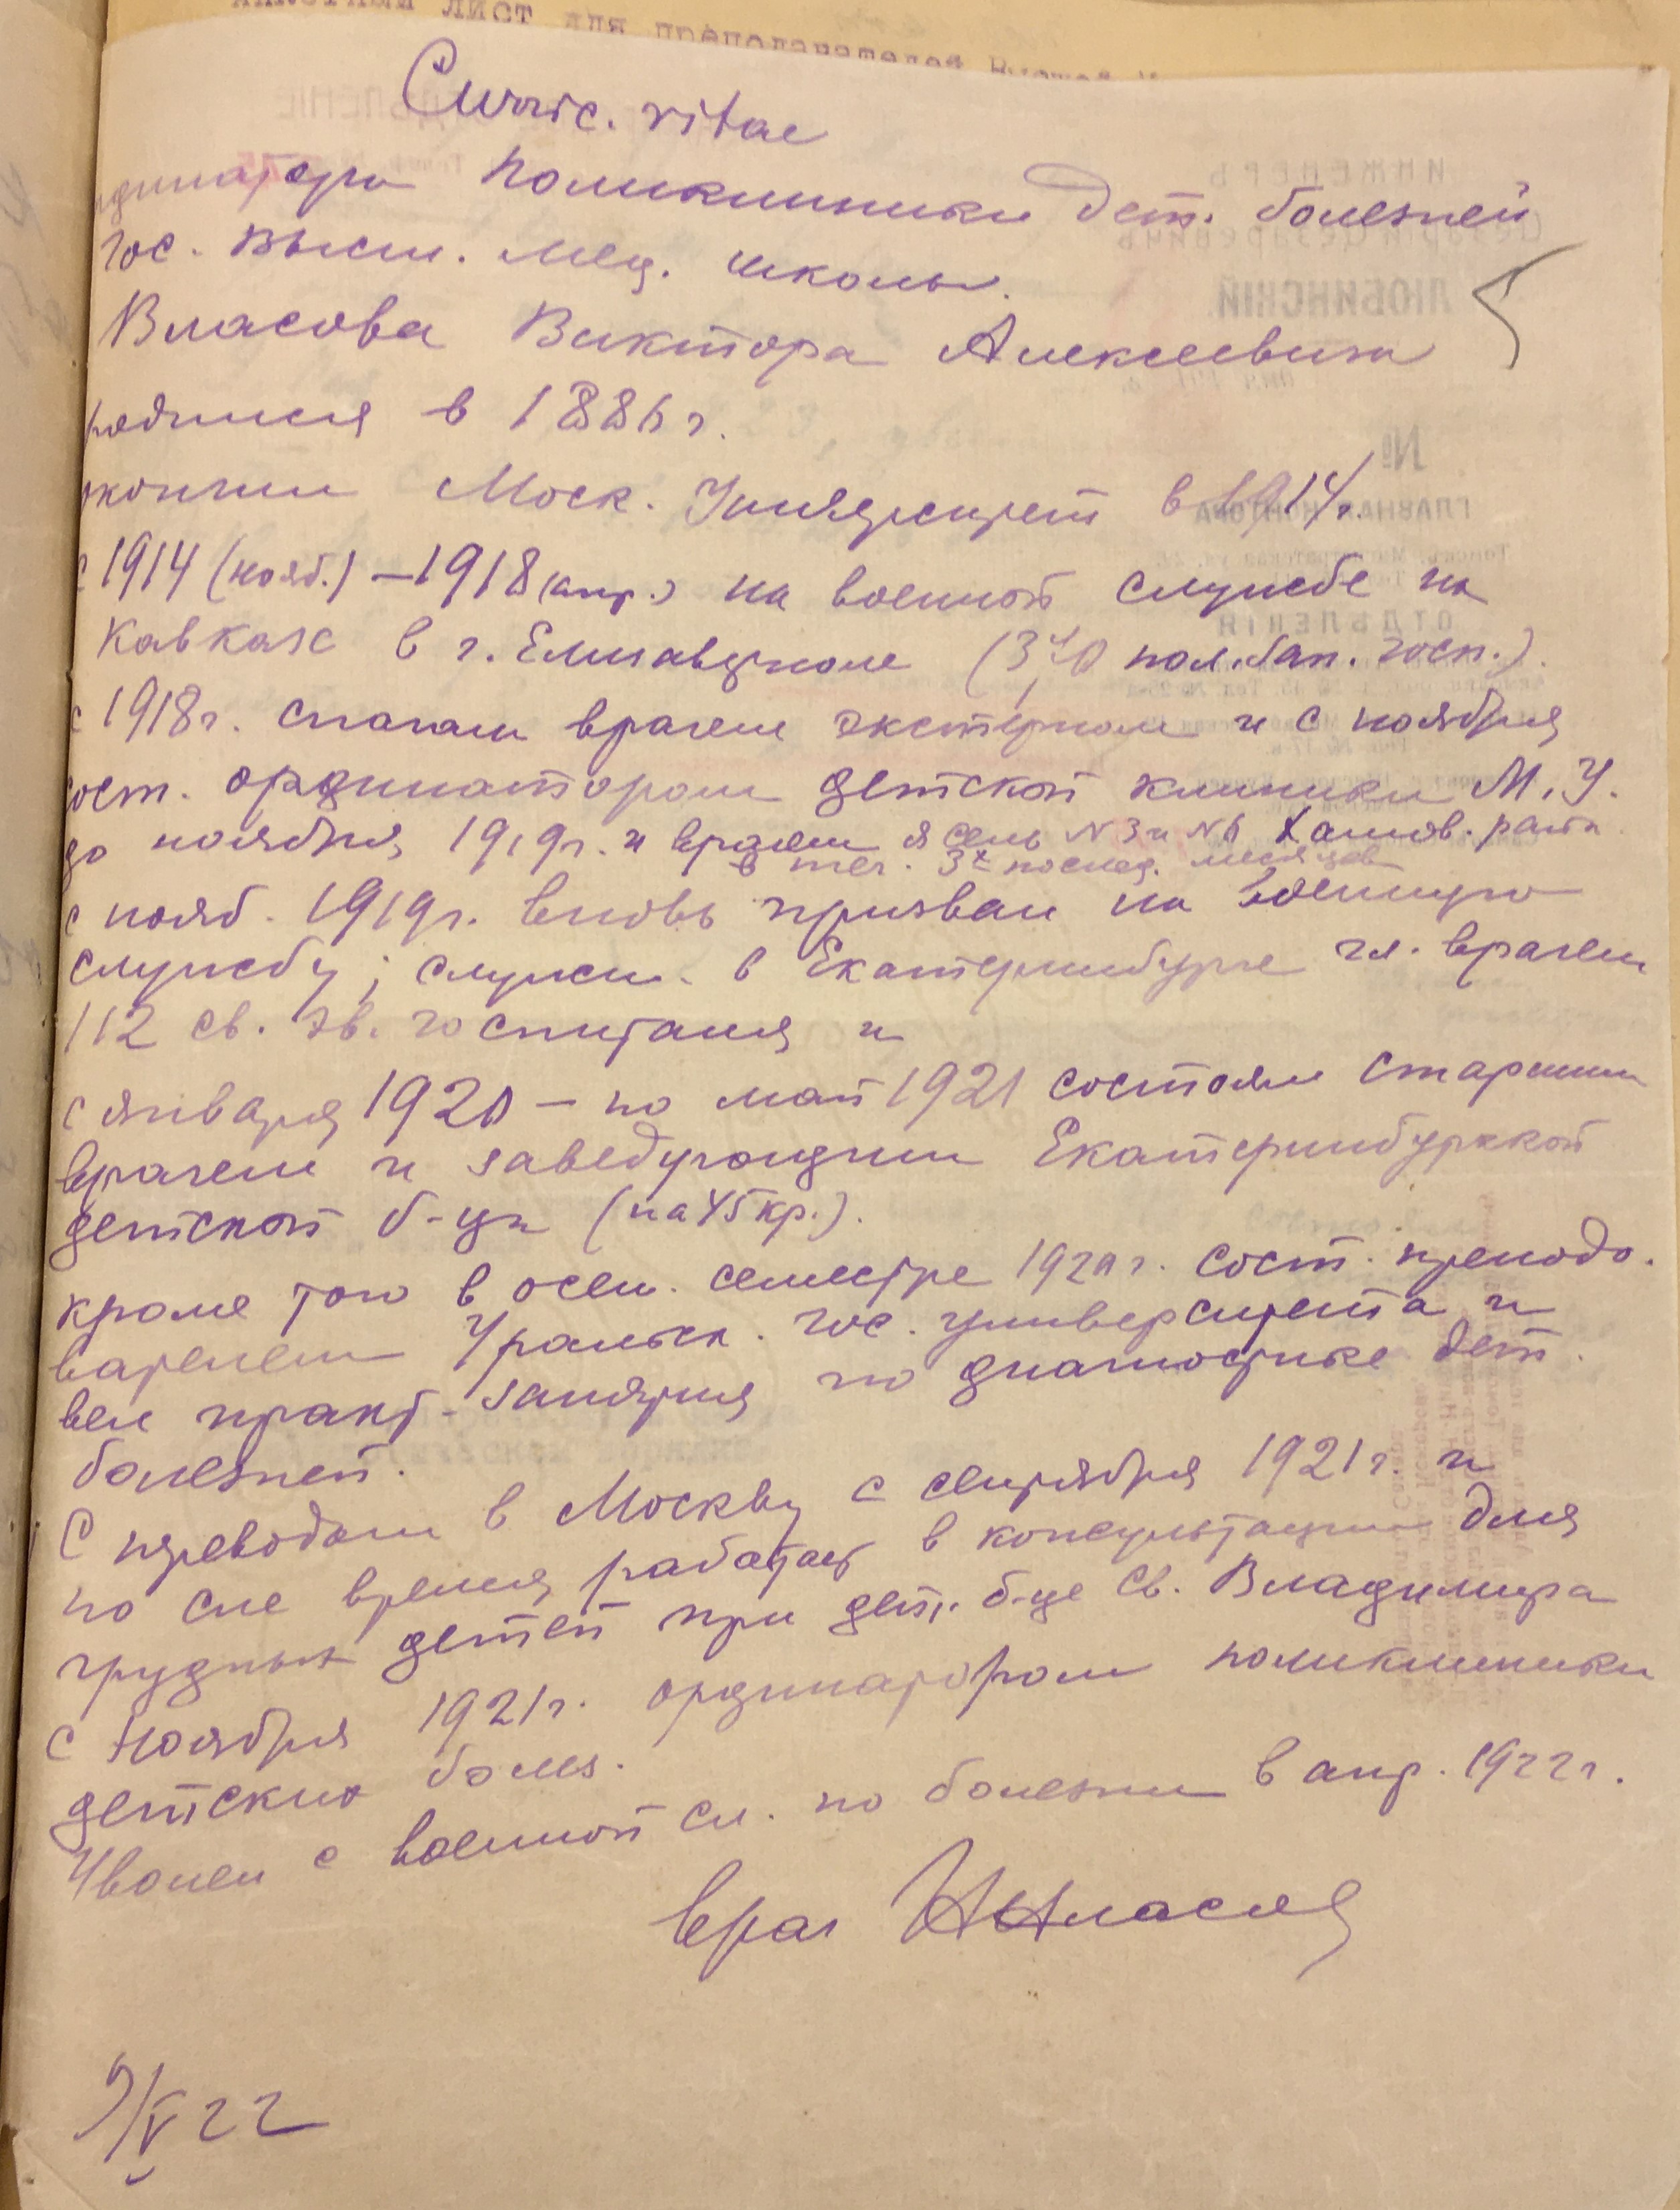 Анкетный лист для преподавателей Высшей
Curric. vitae
ординатора Поликлиники Дет. болезней
Гос. Высш. Мед. школы.
Власова Виктора Алексеевича
родился в 1886 г.
окончил Моск. Университет в 1914 г.
с 1914 (нояб.) – 1918 (апр.) на военной службе на
Кавказе в г. Елисаветполе (370 пол. зап. госп.).
с 1918 г. сначала врачем экстерном и с ноября
сост. ординатором детской клиники М. У.
до ноября 1919 г. и врачем яслей N 3 и N 6 Хамов. райна
в теч. 3х послед. месяцев
с нояб. 1919 г. вновь призван на военную
службу; служил в Екатеринбурге гл. врачем
112 св. эв. госпиталя и
с января 1920 – по май 1921 состоял старшим
врачем и заведующим Екатеринбургской
детской б-цы (на 45 кр.).
кроме того в осен. семестре 1920 г. сост. преподо-
вателем Уральск. гос. университета и
вел практ. занятия по диагностике дет.
болезней.
С переводом в Москву с сентября 1921 г. и
по сие время работаю в консультации для
грудных детей при дет. б-це Св. Владимира
с ноября 1921 г. ординатором поликлиники
детских болез.
Уволен с военной сл. по болезни в апр. 1922 г.
врач
9/V 22
ИНЖЕНЕРЪ
ЛЮБИНСКІЙ
№
ГЛАВНАЯ КОНТОРА
ОТДѢЛЕНІЯ